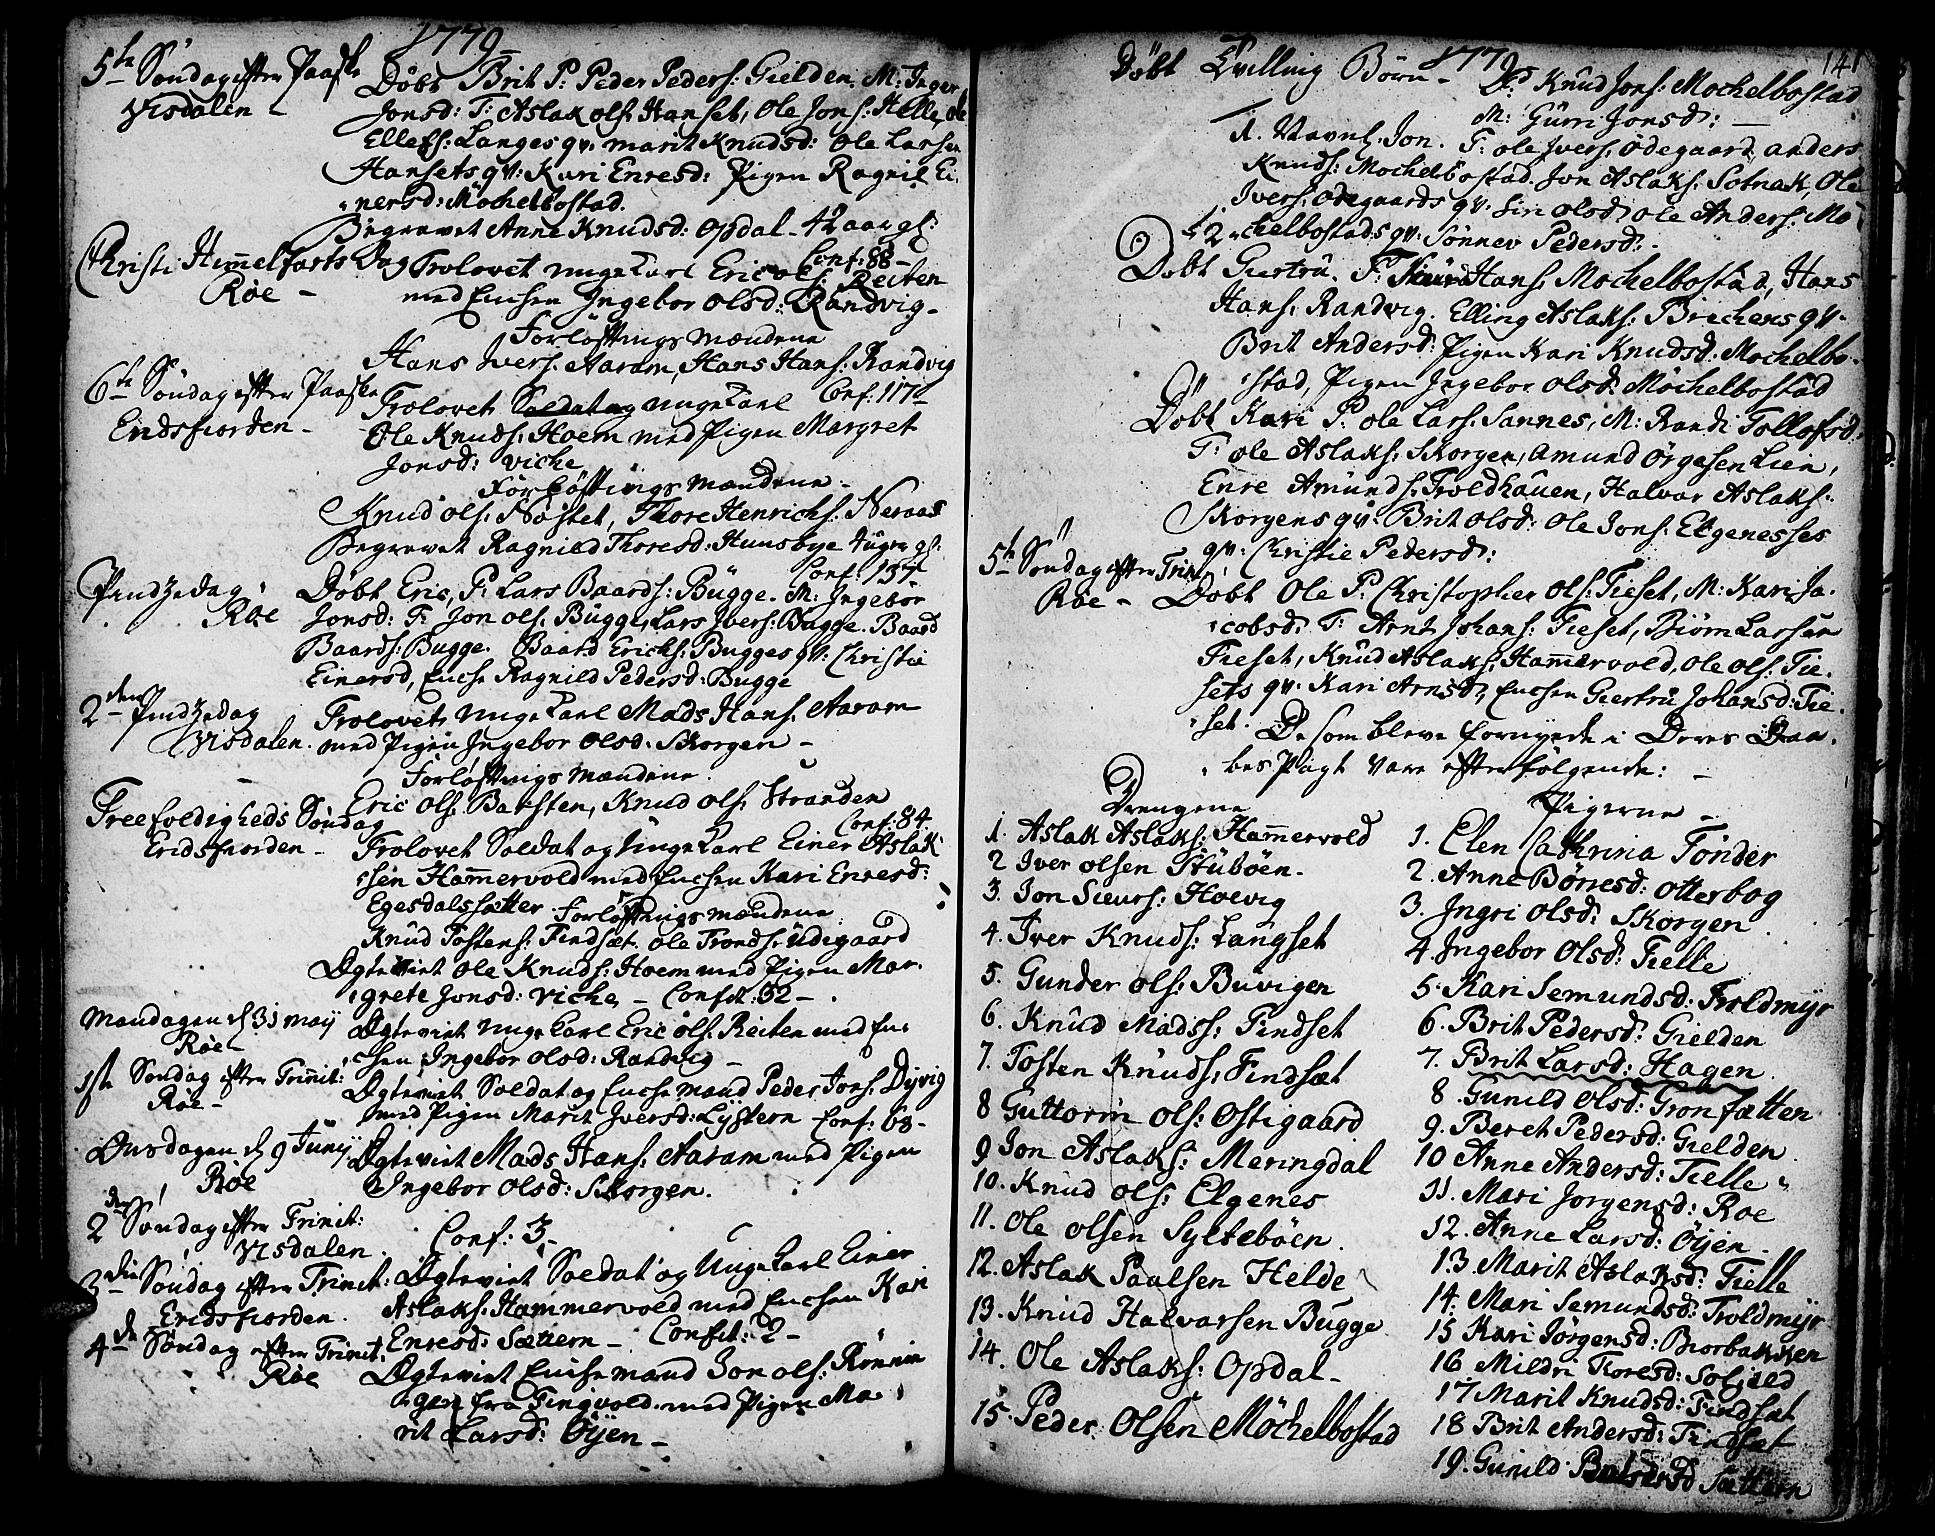 1779
5te Søndag efter Paaske
Visdalen
Døbt Brit P: Peder Peders: Gielden. M: Inger
Jonsd: F: Aslak ols: Hanset, Ole Jons: Helle, Ole
Ellefs: Langes qv: marit Knudsd: Ole Larsen
Hansets qv: Kari Enresd: Pigen Ragnil Ei
nersd: Møchelbostad.
Begravet Anne Knudsd: Opdal 42 aar gl:
Conf: 88
Christi Himmelfarts Dag
Røe
Trolovet unge Karl Eric ols: Reiten
med Enchen Ingebor Olsd: Randvig
Forløftings Mændene
Hans Ivers: Aaram, Hans Hans: Randvig
6te Søndag efter Paaske
Eridsfiorden
Conf: 117
Trolovet unge Karl
Ole Knuds: Hoem med Pigen Margret
Jonsd: Viche
Forløftings Mændene
Knud ols: Nøstet, Thore Henrichs: Neraas
Begravet Ragnild Thoresd: Hunsbye dager gl:
Conf: 157
Pindzedag
Røe
Døbt Eric, P: Lars Baards: Bugge. M: Ingebor
Jonsd: F: Jon ols: Bugge, Lars Ivers: Bugge. Baard
Baards: Bugge. Baard Erichs: Bugges qv: Christie
Einersd, Enche Ragnild Pedersd: Bugge
2den Pindzedag
Visdalen
Trolovet unge Karl Mads Hans: Aaram
med Pigen Ingebor Olsd: Skorgen
Forløftnings Mændene
Eric Ols: Barsten, Knud ols: Stranden
Conf: 84
Treefoldigheds Søndag
Eridsfiorden
Trolovet Soldat og Unge Karl Einer Aslak
sen Hammervold med Enchen Kari Enresd:
Egesdalssætter. Forløftnings mændene
Knud Tostens: Findsæt. ole Tronds: Ødegaard
Ægteviet Ole Knuds: Hoem med Pigen Mar
grete Jonsd: Viche Confit: 32
Mandagen d 31 maij
Røe
Ægteviet unge Karl Eric ols: Reiten med En
chen Ingebor Olsd: Randvig
1ste Søndag efter Trinit:
Røe
Ægteviet Soldat og Enche mand Peder Jons: Dyvig
med Pigen Marit Iversd: Lystern Conf: 68
Onsdagen d 9 Junij
Røe
Ægteviet Mads Hans: Aaram med Pigen
Ingebor Olsd: Skorgen.
2den Søndag efter Trinit:
Visdalen
Conf: 3
3die Søndag efter Trinit:
Eridsfiorden
Ægteviet Soldat og Unge Karl Einer
Aslaks: Hammervold med Enchen Kari
Enresd: Sættern Confit: 2
4de Søndag efter Trinit:
Røe
Ægteviet Enche mand Jon ols: Rønnin
gen fra Tingvold med Pigen Ma
rit Larsd: Øyen
1779
141
Døbt Tvilling Børn P: Knud Jons: Mochelbostad
M: Guri Jonsd:
1. Navnl. Jon. F: ole Ivers: Ødegaard, anders
Knuds: Mochelbostad. Jon Aslaks: Sotnak, Ole
Ivers: Ødegaards qv: Siri olsd, ole Anders: Mo
chelbostads qv: Sønnev Pedersd:
2
Døbt Giertru. F: Hans: Mochelbostad, Hans
Hans: Randvig. Elling Aslaks: Brechens qv.
Brit Andersd: Pigen Kari Knudsd: Mochelbo
stad, Pigen Ingebor Olsd: Møchelbostad
Døbt Kari P: ole Lars: Sannes, M: Randi Tollofsd:
F: ole Aslaks: Skorgen, Amund Ørgesen Lien,
Enre Amunds: Troldhauen, Halvar Aslaks:
Skorgens qv: Brit Olsd: Ole Jons: Elgenesses
qv: Christie Pedersd:
5te Søndag efter Trinit:
Røe
Døbt Ole P: Christopher Ols: Tieset, M: Kari Ja
cobsd: F: Arnt Johans: Tieset, Biørn Larsen
Tieset, Knud Aslaks: Hammervold, Ole ols: Tie
sets qv: Kari Arnsd, Enchen Giertru Johansd: Tie
set. De som bleve fornyede i Deres Daa
bes Pagt vare efterfølgende:
Drengene
1. Aslak Aslaks: Hammervold
2 Iver olsen Stubøen
3. Jon Siurs: Hoevig
4. Iver Knuds: Langset
5. Gunder ols: Buvigen
6. Knud Madss: Findset
7. Tosten Knuds: Findsæt
8 Guttorm ols: Østigaard
9 Jon Aslaks: Meringdal
10. Knud ols: Elgenes
11. Ole olsen Syltebøen
12. Aslak Paalsen Helde
13. Knud Halvarsen Bugge
14. Ole Aslaks: Opdal
15. Peder Olsen Møchelbostad
Pigerne
1. Elen Cathrina Tønder
2. Anne Børresd: Otterbog
3. Ingri Olsd: Skorgen
4. Ingebor Olsd: Tielle
5. Kari Semundsd: Troldmyr
6. Brit Pedersd: Gielden
7. Brit Larsd: Hagen
8. Gunild Olsd: Grønsætten
9. Beret Pedersd: Gielden
10 Anne Andersd: Tielle
11. Mari Jorgensd: Roe
12. Anne Larsd: Øyen
13. Marit Aslaksd: Tielle
14. Mari Semundsd: Troldmyr
15 Kari Jørgensd: Biorbakken
16 Mildri Toresd: Soljed
17 Marit Knudsd: Findsæt
18 Brit Andersd: Findsæt
19. Gunild Sættern